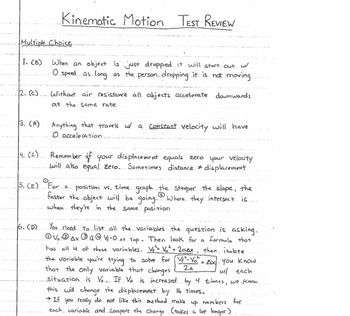 Kinematic Motion TEST REVIEW
Multiple Choice
1. (B) When an object is just dropped it will start out w/
0 speed as long as the person dropping it is not moving
2. (C) Without air resistance all objects accelerate downwards
at the same rate
3. (A) Anything that travels w/ a constant velocity will have
0 acceleration
4. (C) Remember if your displacement equals zero your velocity
will also equal zero. Sometimes distance ≠ displacement
5. (E) ① For a position vs. time graph the steeper the slope, the
faster the object will be going. ② Where they intersect is
when they're in the same position
6. (D) You need to list all the variables the question is asking.
① V₀ ② Δx ③ a ④ Vf=0 at top. Then look for a formula that
has all 4 of these variables. Vf²=V₀²+2aΔx, then isolate
the variable you're trying to solve for Vf²-V₀²/2a = Δx, you know
that the only variable that changes w/ each
situation is V₀. If V₀ is increased by 4 times, we know
this will change the displacement by 16 times.
→ If you really do not like this method make up numbers for
each variable and compare the change (takes a lot longer)